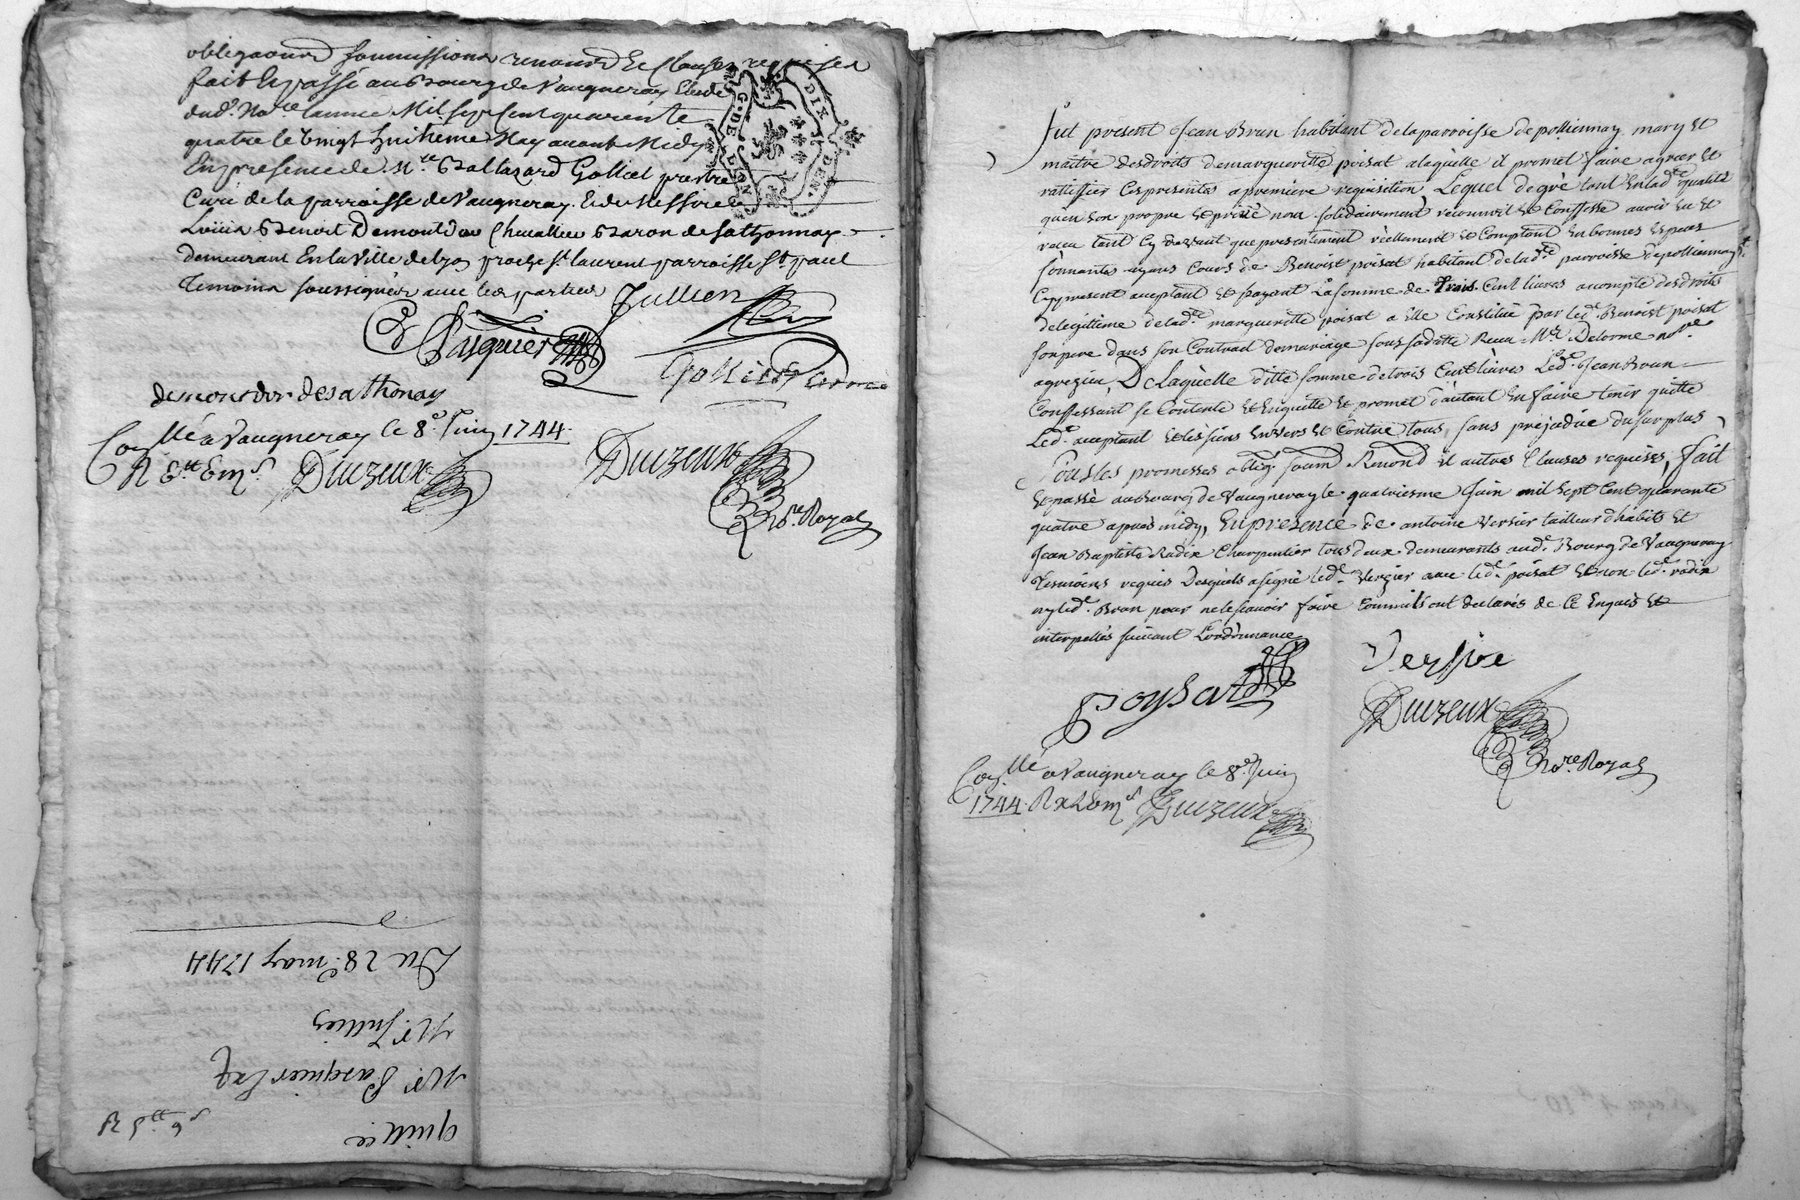 obligaons soumissions renonons Et Clauses requises
fait Et passé au Bourg de Vaugneray Etude
dud. No.re l'annee Mil sept cent quarente
quatre le vingt huitieme May avant Midy
En presence de M.re Baltazard Golliet prestre
Curé de la parroisse de Vaugneray Et de Messire
Louis Benoit Demontdor Chevallier Baron de sathonnay
demeurant En la ville de lyon proche st laurent parroisse st paul
Temoins soussignés avec les parties
G. DE LYON DIX DEN.
Jullien
Pasquier
Golliet
demontdor desathonay
Con.llé a Vaugneray le 8.e Juin 1744
Duizeux
Duizeux
No.re Royal
Du 28.e may 1744
M.r Jullien
M.r Pasquier
quittce
fut present Jean Brun habitant de la parroisse de pollionnay mary Et
maitre des droits de margueritte poisat a laquelle il promet faire agréer Et
rattiffier Ces presentes a premiere requisition Lequel de gré tant En lad.te qualité
qu'en son propre Et privé nom solidairement reconnoit Et Confesse avoir Eu Et
receu tant Cy devant que presentement réellement Et Comptant En bonnes Especes
sonnantes ayans Cours de Benoist poisat habitant de lad.te parroisse de pollionnay
Cy present acceptant Et payant La somme de trois Cent livres a compte des droits
de legittime de lad.te margueritte poisat a Elle Constitué par led.t Benoist poisat
son pere dans son Contract de mariage sous sa datte Receu M.e Delorme no.re
a grezieu, De Laquelle ditte somme de trois Cent livres Led.t Jean Brun
Confessant se Contente Et En quitte Et promet d'autant En faire tenir quitte
Led.t acceptant Et les siens Envers Et Contre tous, sans prejudice du surplus
Sous les promesses oblig. soum. Renond. Et autres Clauses requises, fait
Et passé au Bourg de Vaugneray le quatriesme Juin mil sept Cent quarante
quatre apres midy, En presence de antoine Versier tailleur d'habits Et
Jean Baptiste Radix Charpentier tous deux demeurants aud.t Bourg de Vaugneray
Tesmoins requis Desquels a signé led.t Verzier avec led.t poisat Et non led.t radix
ny led.t Brun pour ne le scavoir faire Comm'ils ont declarés de Ce Enquis Et
interpellés suivant L'ordonnance
Poysat
Versire
Duizeux
No.re Royal
Con.llé a Vaugneray le 8.e Juin
1744
Duizeux